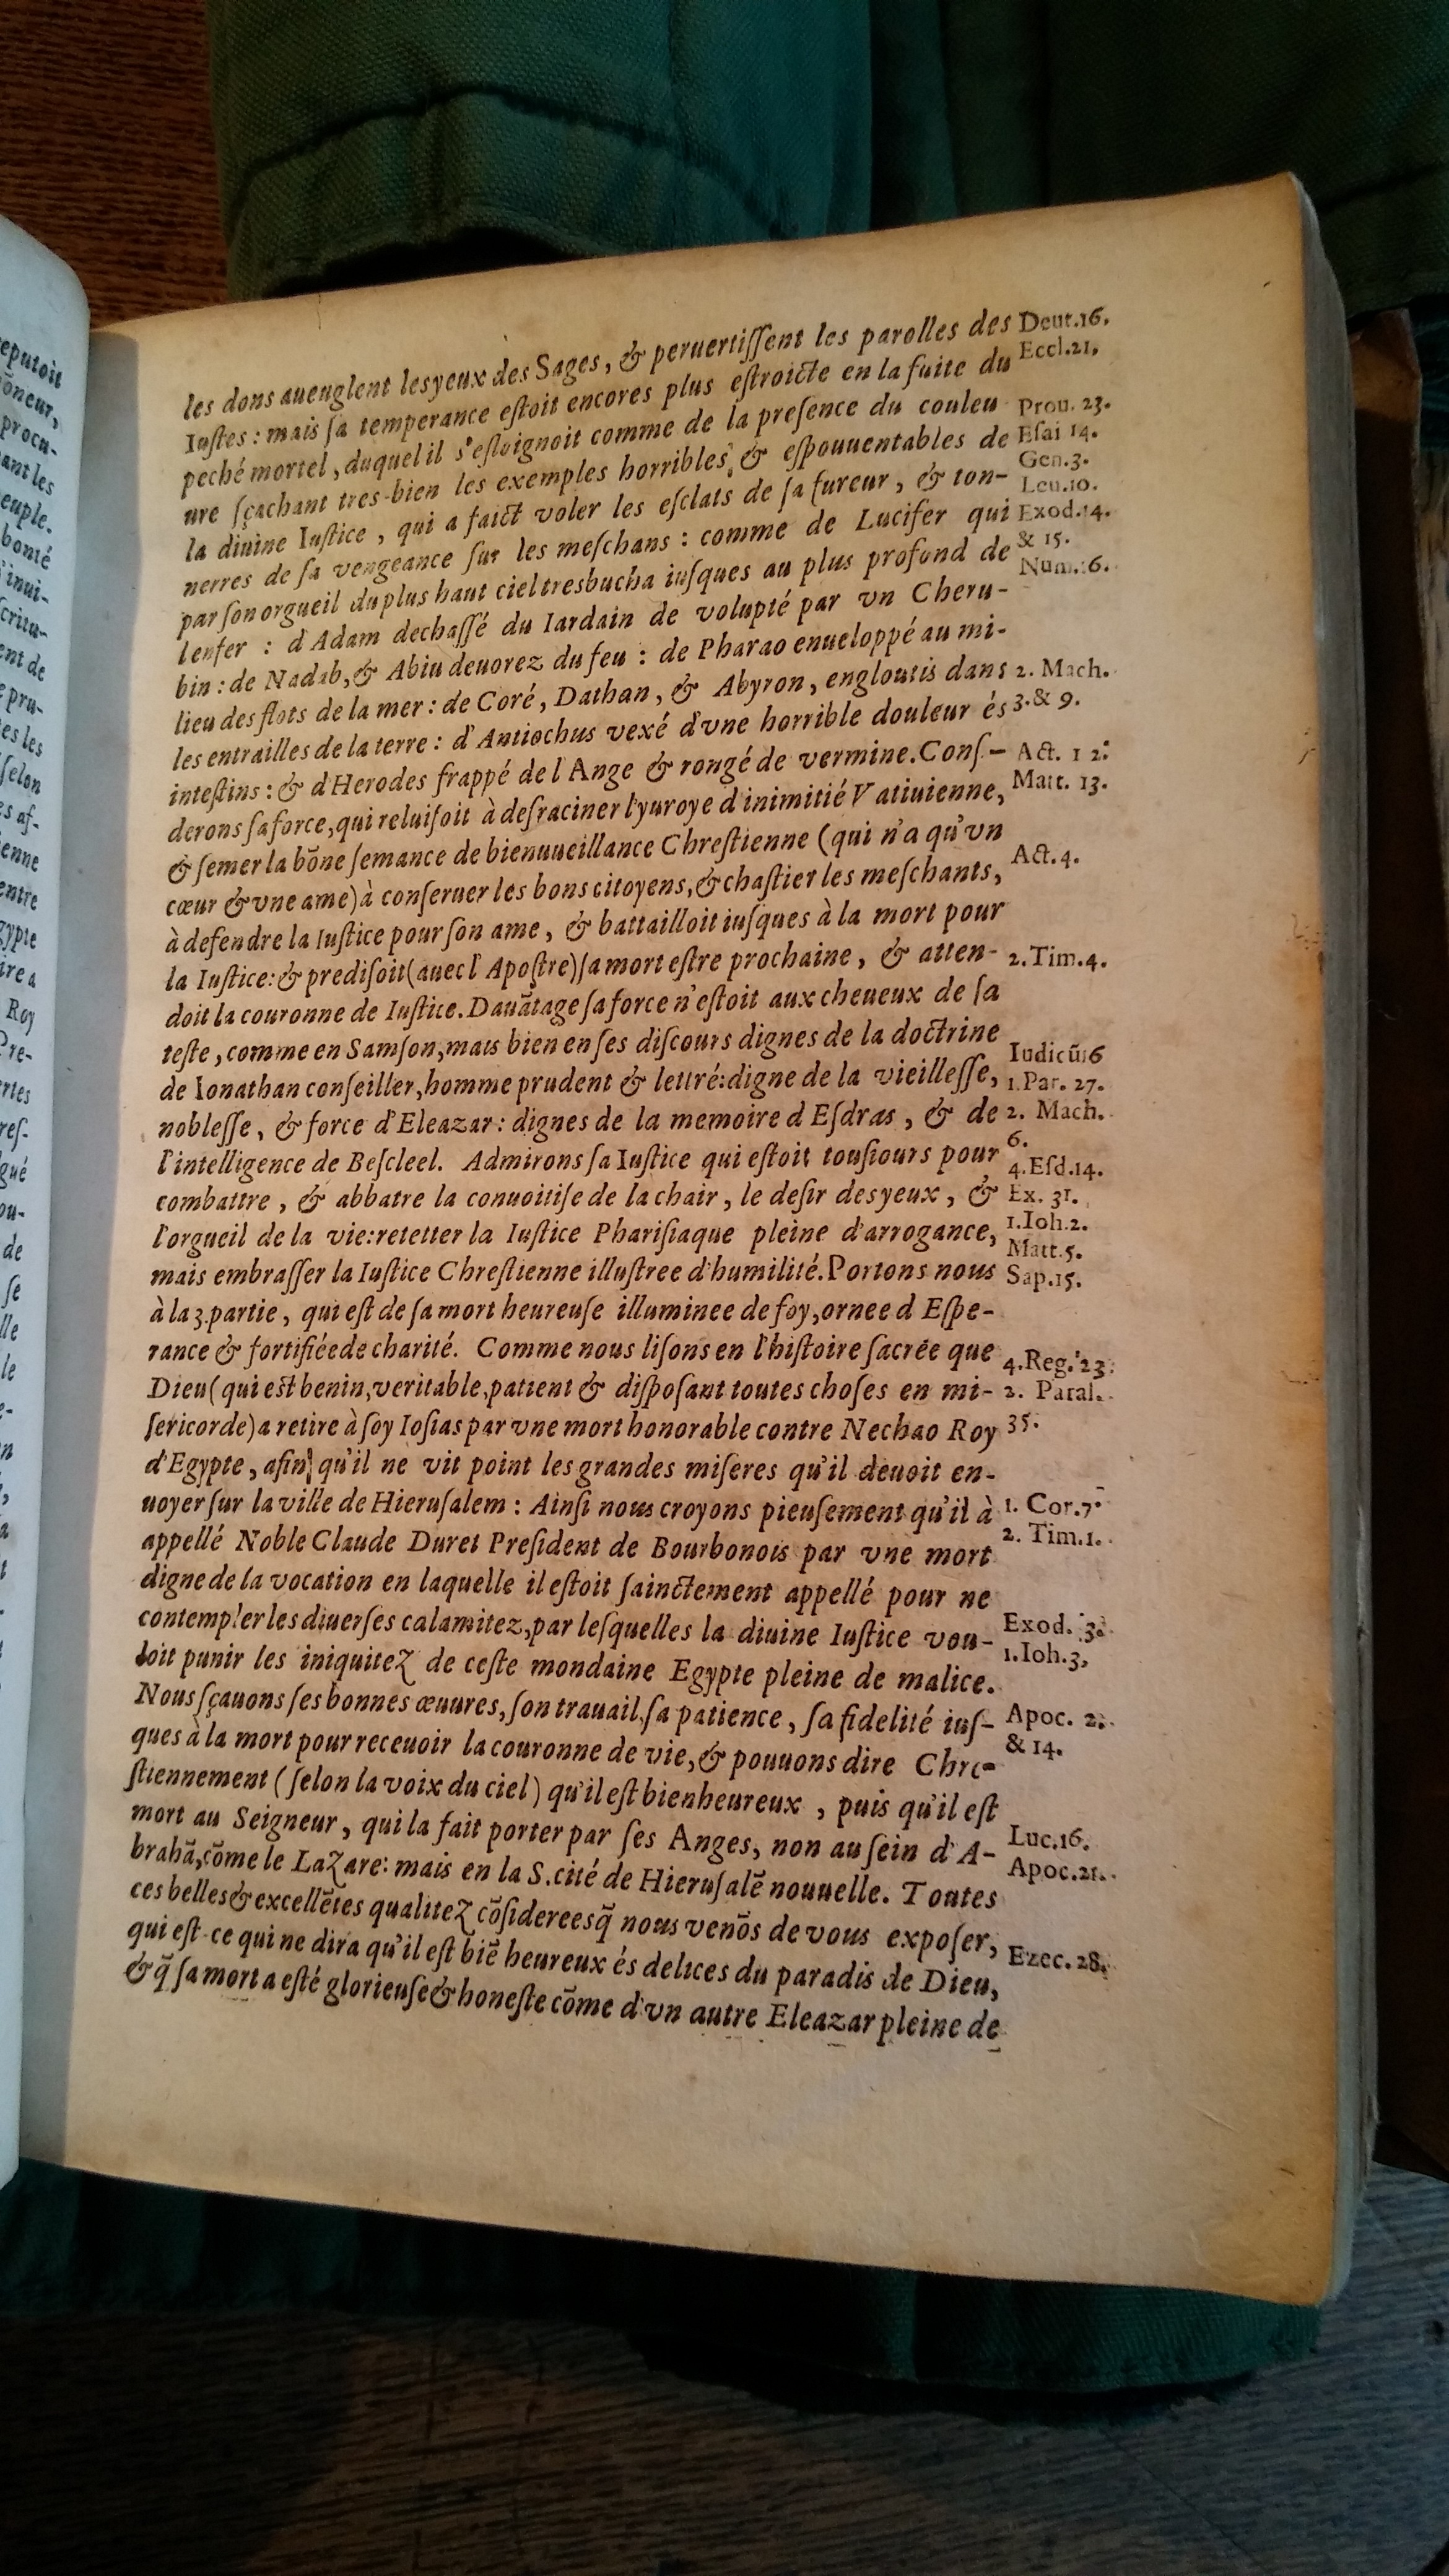 les dons aueuglent lesyeux des Sages, & peruertiſſent les parolles des Deut.16.
Iuſtes : mais ſa temperance eſtoit encores plus eſtroicte en la fuite du Eccl.21.
peché mortel, duquel il s'eſloignoit comme de la preſence du couleu- Prou. 23.
ure ſçachant tres-bien les exemples horribles, & eſpouuentables de Eſai 14.
la diuine Iuſtice, qui a faict voler les eſclats de ſa fureur, & ton- Gen.3. Leu.10.
nerres de ſa vengeance ſur les meſchans : comme de Lucifer qui Exod.14.
par ſon orgueil du plus haut ciel tresbucha iuſques au plus profond de & 15.
lenfer : d'Adam dechaſſé du Iardain de volupté par vn Cheru- Num.16.
bin : de Nadab, & Abiu deuorez du feu : de Pharao enueloppé au mi-
lieu des flots de la mer : de Coré, Dathan, & Abyron, engloutis dans 2. Mach.
les entrailles de la terre : d'Antiochus vexé d'vne horrible douleur és 3.& 9.
inteſtins : & d'Herodes frappé de l'Ange & rongé de vermine. Conſ- Act. 12.
derons ſa force, qui reluiſoit à deſraciner l'yuroye d'inimitié Vatiuienne, Matt. 13.
& ſemer la bōne ſemance de bienuueillance Chreſtienne (qui n'a qu'vn
cœur & vne ame) à conſeruer les bons citoyens, & chaſtier les meſchants, Act.4.
à defendre la Iuſtice pour ſon ame, & battailloit iuſques à la mort pour
la Iuſtice: & prediſoit (auec l'Apoſtre) ſa mort eſtre prochaine, & atten- 2.Tim.4.
doit la couronne de Iuſtice. Dauātage ſa force n'eſtoit aux cheueux de ſa
teſte, comme en Samſon, mais bien en ſes diſcours dignes de la doctrine
de Ionathan conſeiller, homme prudent & lettré: digne de la vieilleſſe, Iudicū16 1.Par. 27.
nobleſſe, & force d'Eleazar : dignes de la memoire d'Eſdras, & de 2. Mach.
l'intelligence de Beſcleel. Admirons ſa Iuſtice qui eſtoit touſiours pour 6. 4.Eſd.14.
combattre, & abbatre la conuoitiſe de la chair, le deſir des yeux, & Ex. 31.
l'orgueil de la vie: retetter la Iuſtice Phariſiaque pleine d'arrogance, 1.Ioh.2. Matt.5.
mais embraſſer la Iuſtice Chreſtienne illuſtree d'humilité. Portons nous Sap.15.
à la 3. partie, qui eſt de ſa mort heureuſe illuminee de foy, ornee d'Eſpe-
rance & fortifiée de charité. Comme nous liſons en l'hiſtoire ſacrée que 4.Reg. 23.
Dieu (qui eſt benin, veritable, patient & diſpoſant toutes choſes en mi- 2. Paral.
ſericorde) a retire à ſoy Ioſias par vne mort honorable contre Nechao Roy 35.
d'Egypte, afin qu'il ne vit point les grandes miſeres qu'il deuoit en-
uoyer ſur la ville de Hieruſalem : Ainſi nous croyons pieuſement qu'il à 1. Cor.7.
appellé Noble Claude Duret Preſident de Bourbonois par vne mort 2. Tim.1.
digne de la vocation en laquelle il eſtoit ſainctement appellé pour ne
contempler les diuerſes calamitez, par leſquelles la diuine Iuſtice vou- Exod. 3.
loit punir les iniquitez de ceſte mondaine Egypte pleine de malice. 1.Ioh.3,
Nous ſçauons ſes bonnes œuures, ſon trauail, ſa patience, ſa fidelité iuſ- Apoc. 2.
ques à la mort pour receuoir la couronne de vie, & pouuons dire Chre- & 14.
ſtiennement (ſelon la voix du ciel) qu'il eſt bienheureux, puis qu'il eſt
mort au Seigneur, qui la fait porter par ſes Anges, non au ſein d'A- Luc.16.
brahā, cōme le Lazare: mais en la S. cité de Hieruſalē nouuelle. Toutes Apoc.21.
ces belles & excellētes qualitez cōſiderees q̄ nous venōs de vous expoſer,
qui eſt-ce qui ne dira qu'il eſt biē heureux és delices du paradis de Dieu, Ezec. 28.
& q̄ ſa mort a eſté glorieuſe & honeſte cōme d'vn autre Eleazar pleine de